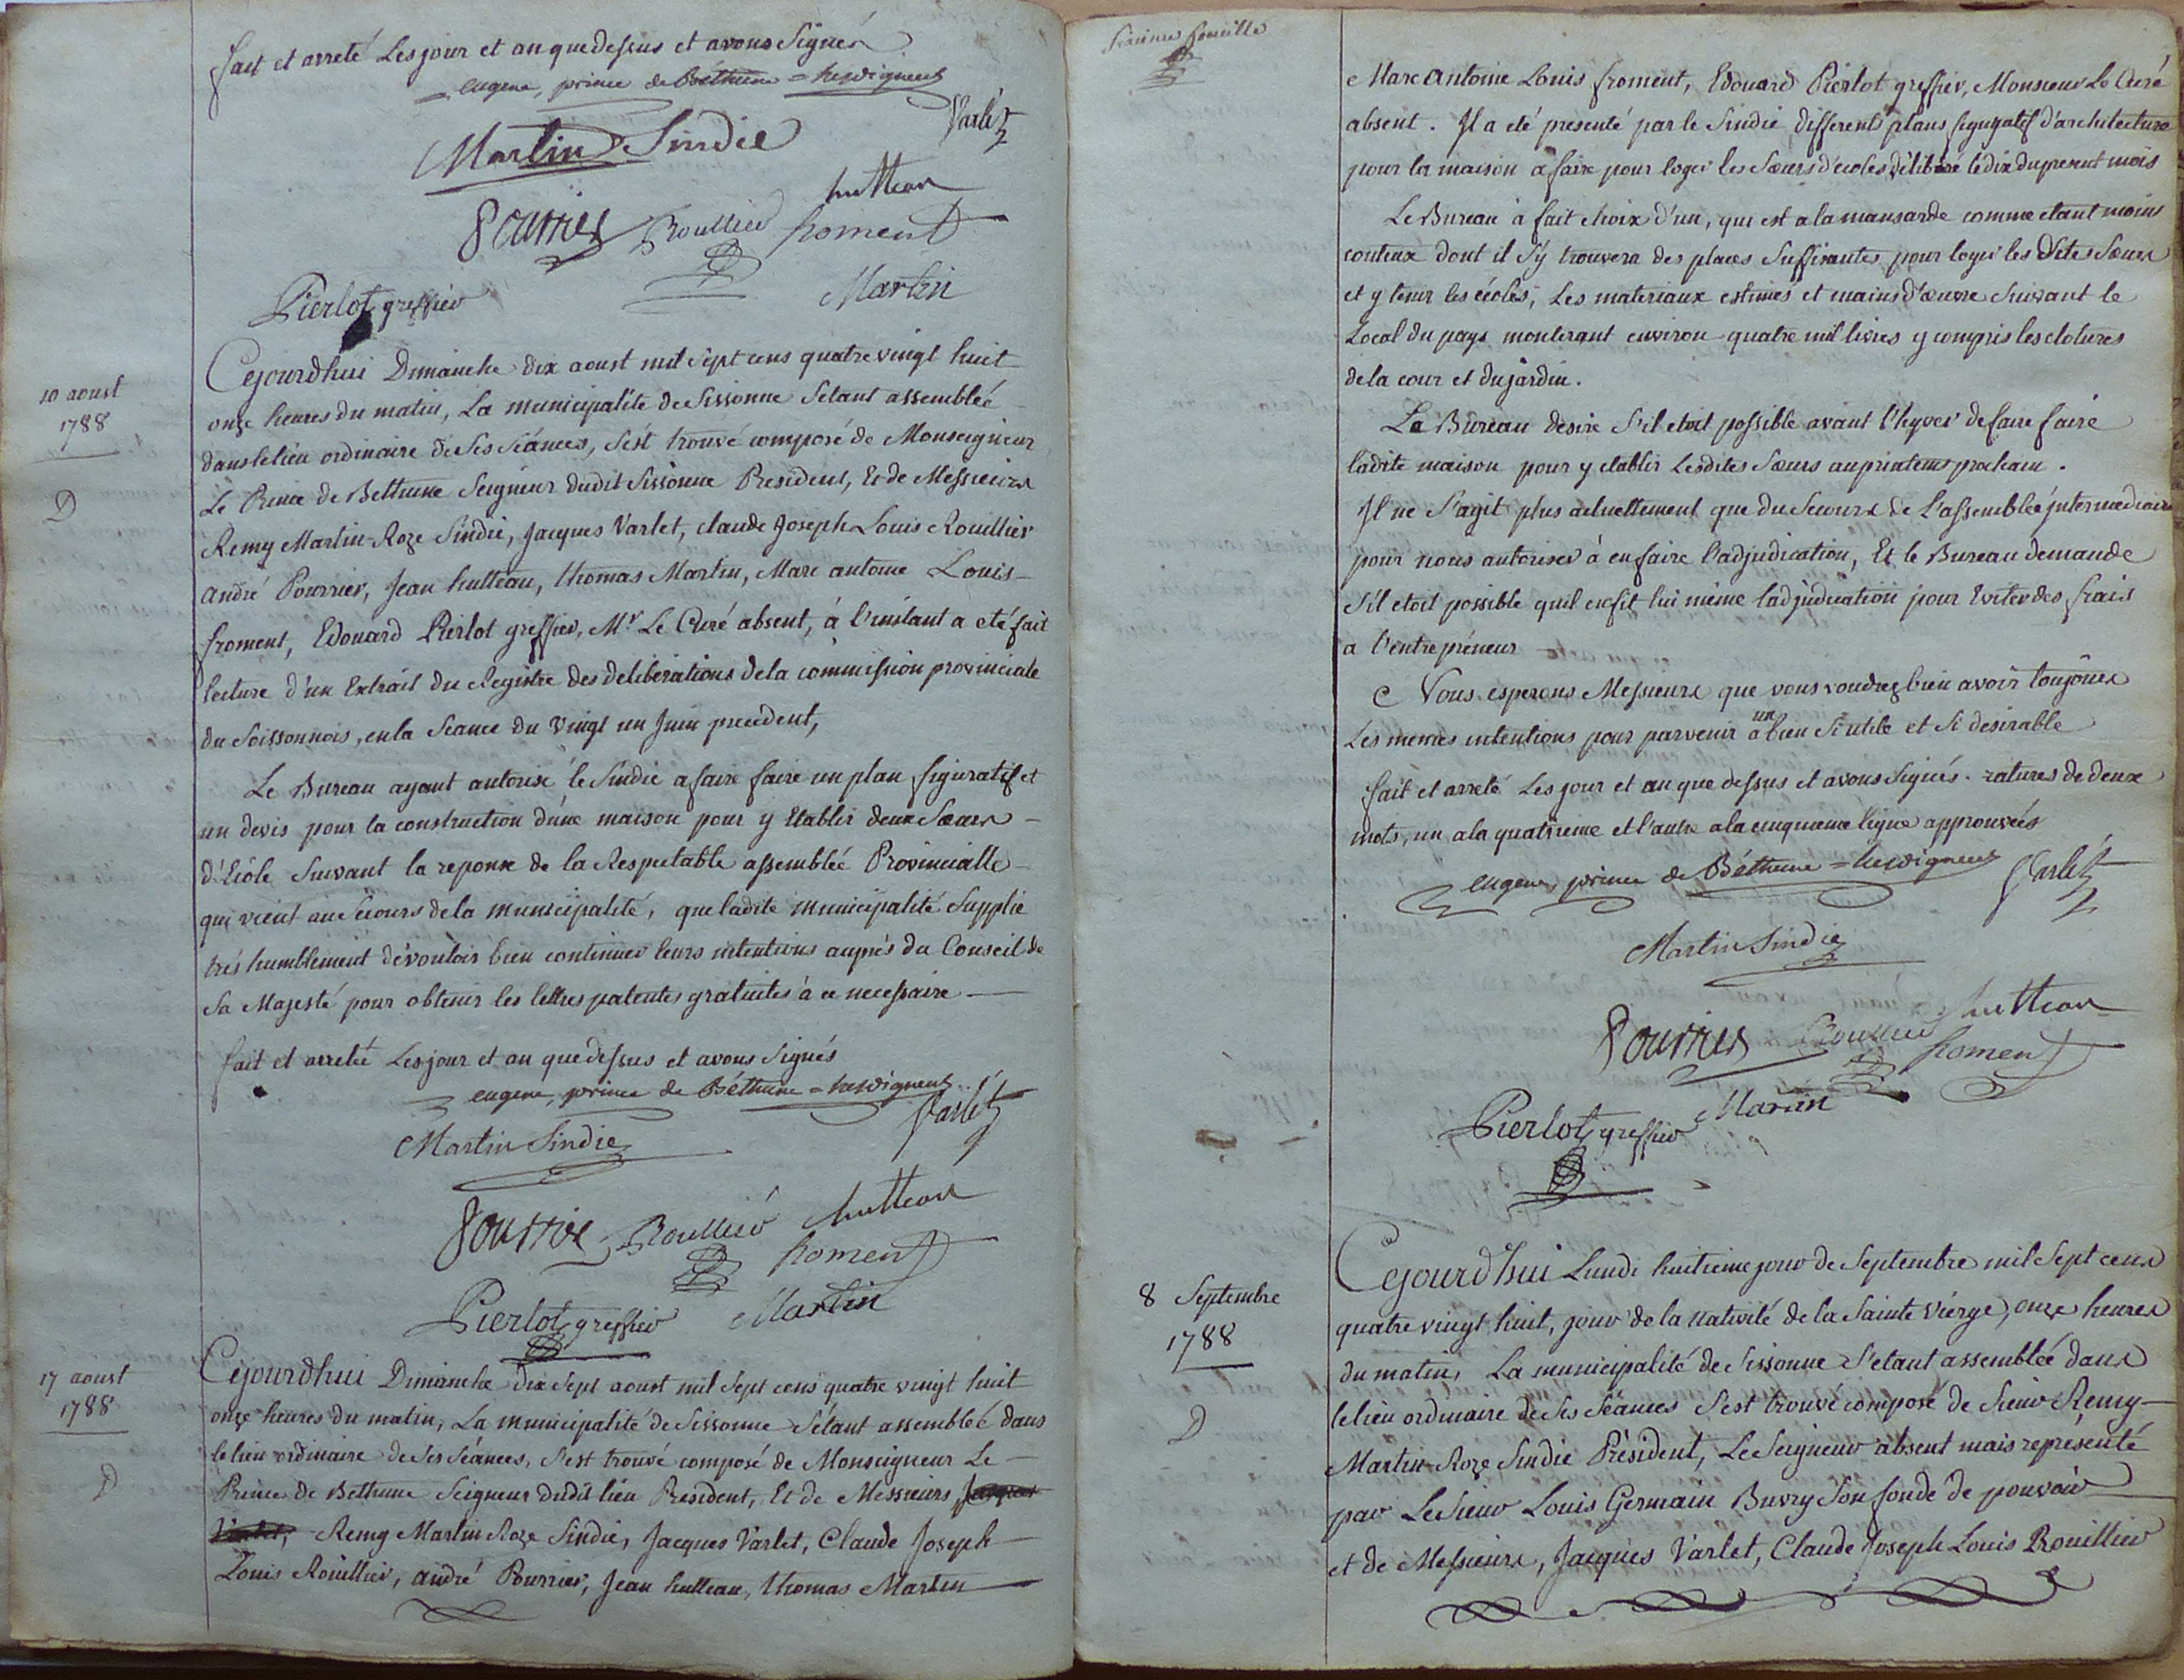 fait et arreté Les jour et an que dessus et avons Signés
eugene, prince de Béthune = hesdigneul
Varlet
Martin Sindic
hutteau
Pourrier Rouillier froment
Martin
Pierlot greffier
10 aoust
1788
D
Cejourdhui Dimanche dix aoust mil Sept cens quatre vingt huit
onze heures du matin, La municipalité de Sissonne S'etant assembleé
dans le lieu ordinaire de Ses Séances, S'est trouvé composé de Monseigneur
Le Prince de Bethune Seigneur dudit Sissonne President, Et de Messieurs
Remy Martin-Roze Sindic, Jacques Varlet, claude Joseph Louis Rouillier
andré Pourrier, Jean hutteau, thomas Martin, Marc antoine Louis
froment, Edouard Pierlot greffier, Mr Le Curé absent, à l'instant a eté fait
lecture d'un Extrait du Registre des deliberations de la commission provinciale
du Soissonnois, en la Seance du vingt un Juin precedent,
Le Bureau ayant autorisé le Sindic a faire faire un plan figuratif et
un devis pour la construction d'une maison pour y Etablir deux Sœurs
d'Ecole Suivant la reponse de la Respectable assembleé Provincialle
qui vient au Secours de la municipalité, que ladite municipalité Supplie
trés humblement de vouloir bien continuer leurs intentions auprés du Conseil de
Sa Majesté pour obtenir les lettres patentes gratuites à ce necessaire
fait et arreté Les jour et an que dessus et avons Signés
eugene, prince de Béthune = hesdigneul
Varlet
Martin Sindic
hutteau
Pourrier Rouillier froment
Pierlot greffier Martin
17 aoust
1788
D
Cejourdhui Dimanche dix Sept aoust mil Sept cens quatre vingt huit
onze heures du matin, La municipalité de Sissonne S'étant assembleé dans
le lieu ordinaire de Ses Séances, S'est trouvé composé de Monseigneur Le
Prince de Bethune Seigneur dudit lieu President, Et de Messieurs Jacques
Varlet, Remy Martin Roze Sindic, Jacques Varlet, Claude Joseph
Louis Rouillier, andré Pourrier, Jean hutteau, thomas Martin
feuille
Marc antoine Louis froment, Edouard Pierlot greffier, Monsieur Le Curé
absent. Il a eté presenté par le Sindic differents plans figuratif d'architecture
pour la maison a faire pour loger les Sœurs d'ecoles délibéré le dix du present mois
Le Bureau à fait choix d'un, qui est a la mansarde comme etant moins
couteux dont il S'y trouvera des places Suffisantes pour loger les dites Sœurs
et y tenir les écoles, Les materiaux estimés et mains d'œuvre Suivant le
Local du pays monterant environ quatre mil livres y compris les clotures
de la cour et du jardin.
Le Bureau desire S'il etoit possible avant l'hyver de faire faire
ladite maison pour y etablir Lesdites Sœurs au printems prochain.
Il ne S'agit plus actuellement que du Secours de L'assembleé intermediaire
pour nous autoriser à en faire l'adjudication, Et le Bureau demande
S'il etoit possible quil en fit lui même l'adjudication pour Eviter des frais
a l'entrepréneur
Nous esperons Messieurs que vous voudrez bien avoir toujours
un
Les memes intentions pour parvenir a bien Si utile et Si desirable
fait et arreté Les jour et an que dessus et avons Signés. ratures de deux
mots, un a la quatrieme et l'autre a la cinquieme ligne approuvés
eugene, prince de Béthune = hesdigneul
Varlet
Martin Sindic
hutteau
Pourrier Rouillier froment
Pierlot greffier Martin
8 Septembre
1788
D
Cejourd'hui Lundi huitieme jour de Septembre mil Sept cens
quatre vingt huit, jour de la nativité de la Sainte Vierge, onze heures
du matin, La municipalité de Sissonne S'etant assembleé dans
le lieu ordinaire de Ses Séances S'est trouvé composé de Sieur Remy
Martin-Roze Sindic Président, Le Seigneur absent mais représenté
par Le Sieur Louis Germain Buvry Son fondé de pouvoir
et de Messieurs, Jacques Varlet, Claude Joseph Louis Rouillier